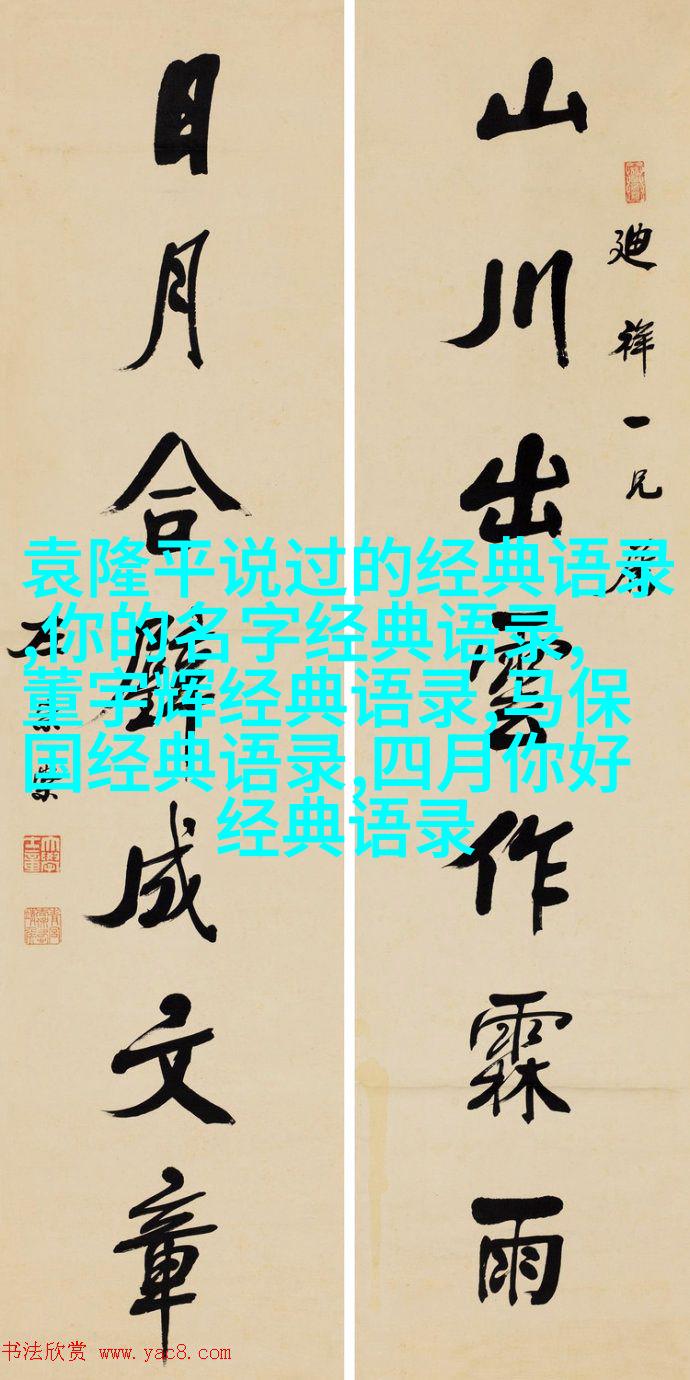 廸祥一兄
山川出雲作霖雨
日月合璧成文章
左宗棠
袁隆平说过的经典语录
,你的名字经典语录,
董宇辉经典语录,马保
国经典语录,四月你好
经典语录
书法欣赏 www.yac8.com